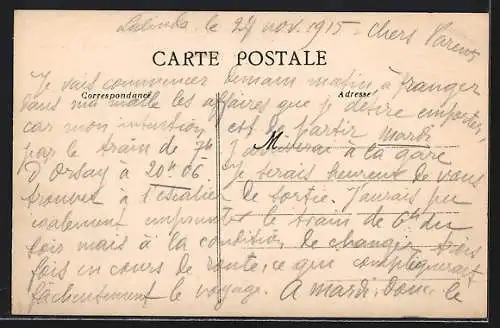 Lalinde le 27 nov. 1915 - Chers Parents
CARTE POSTALE
Je vais commencer demain matin à ranger
Correspondance
Adresse
dans ma malle les affaires que je désire emporter,
car mon intention est de partir mardi
M
par le train de 7h J'arriverai à la gare
d'Orsay à 20h 06. Je serais heureux de vous
trouver à l'escalier de sortie. J'aurais pu
également emprunter le train de 6h du
soir mais à la condition de changer trois
fois en cours de route, ce que compliquerait
fâcheusement le voyage. A mardi, donc, le